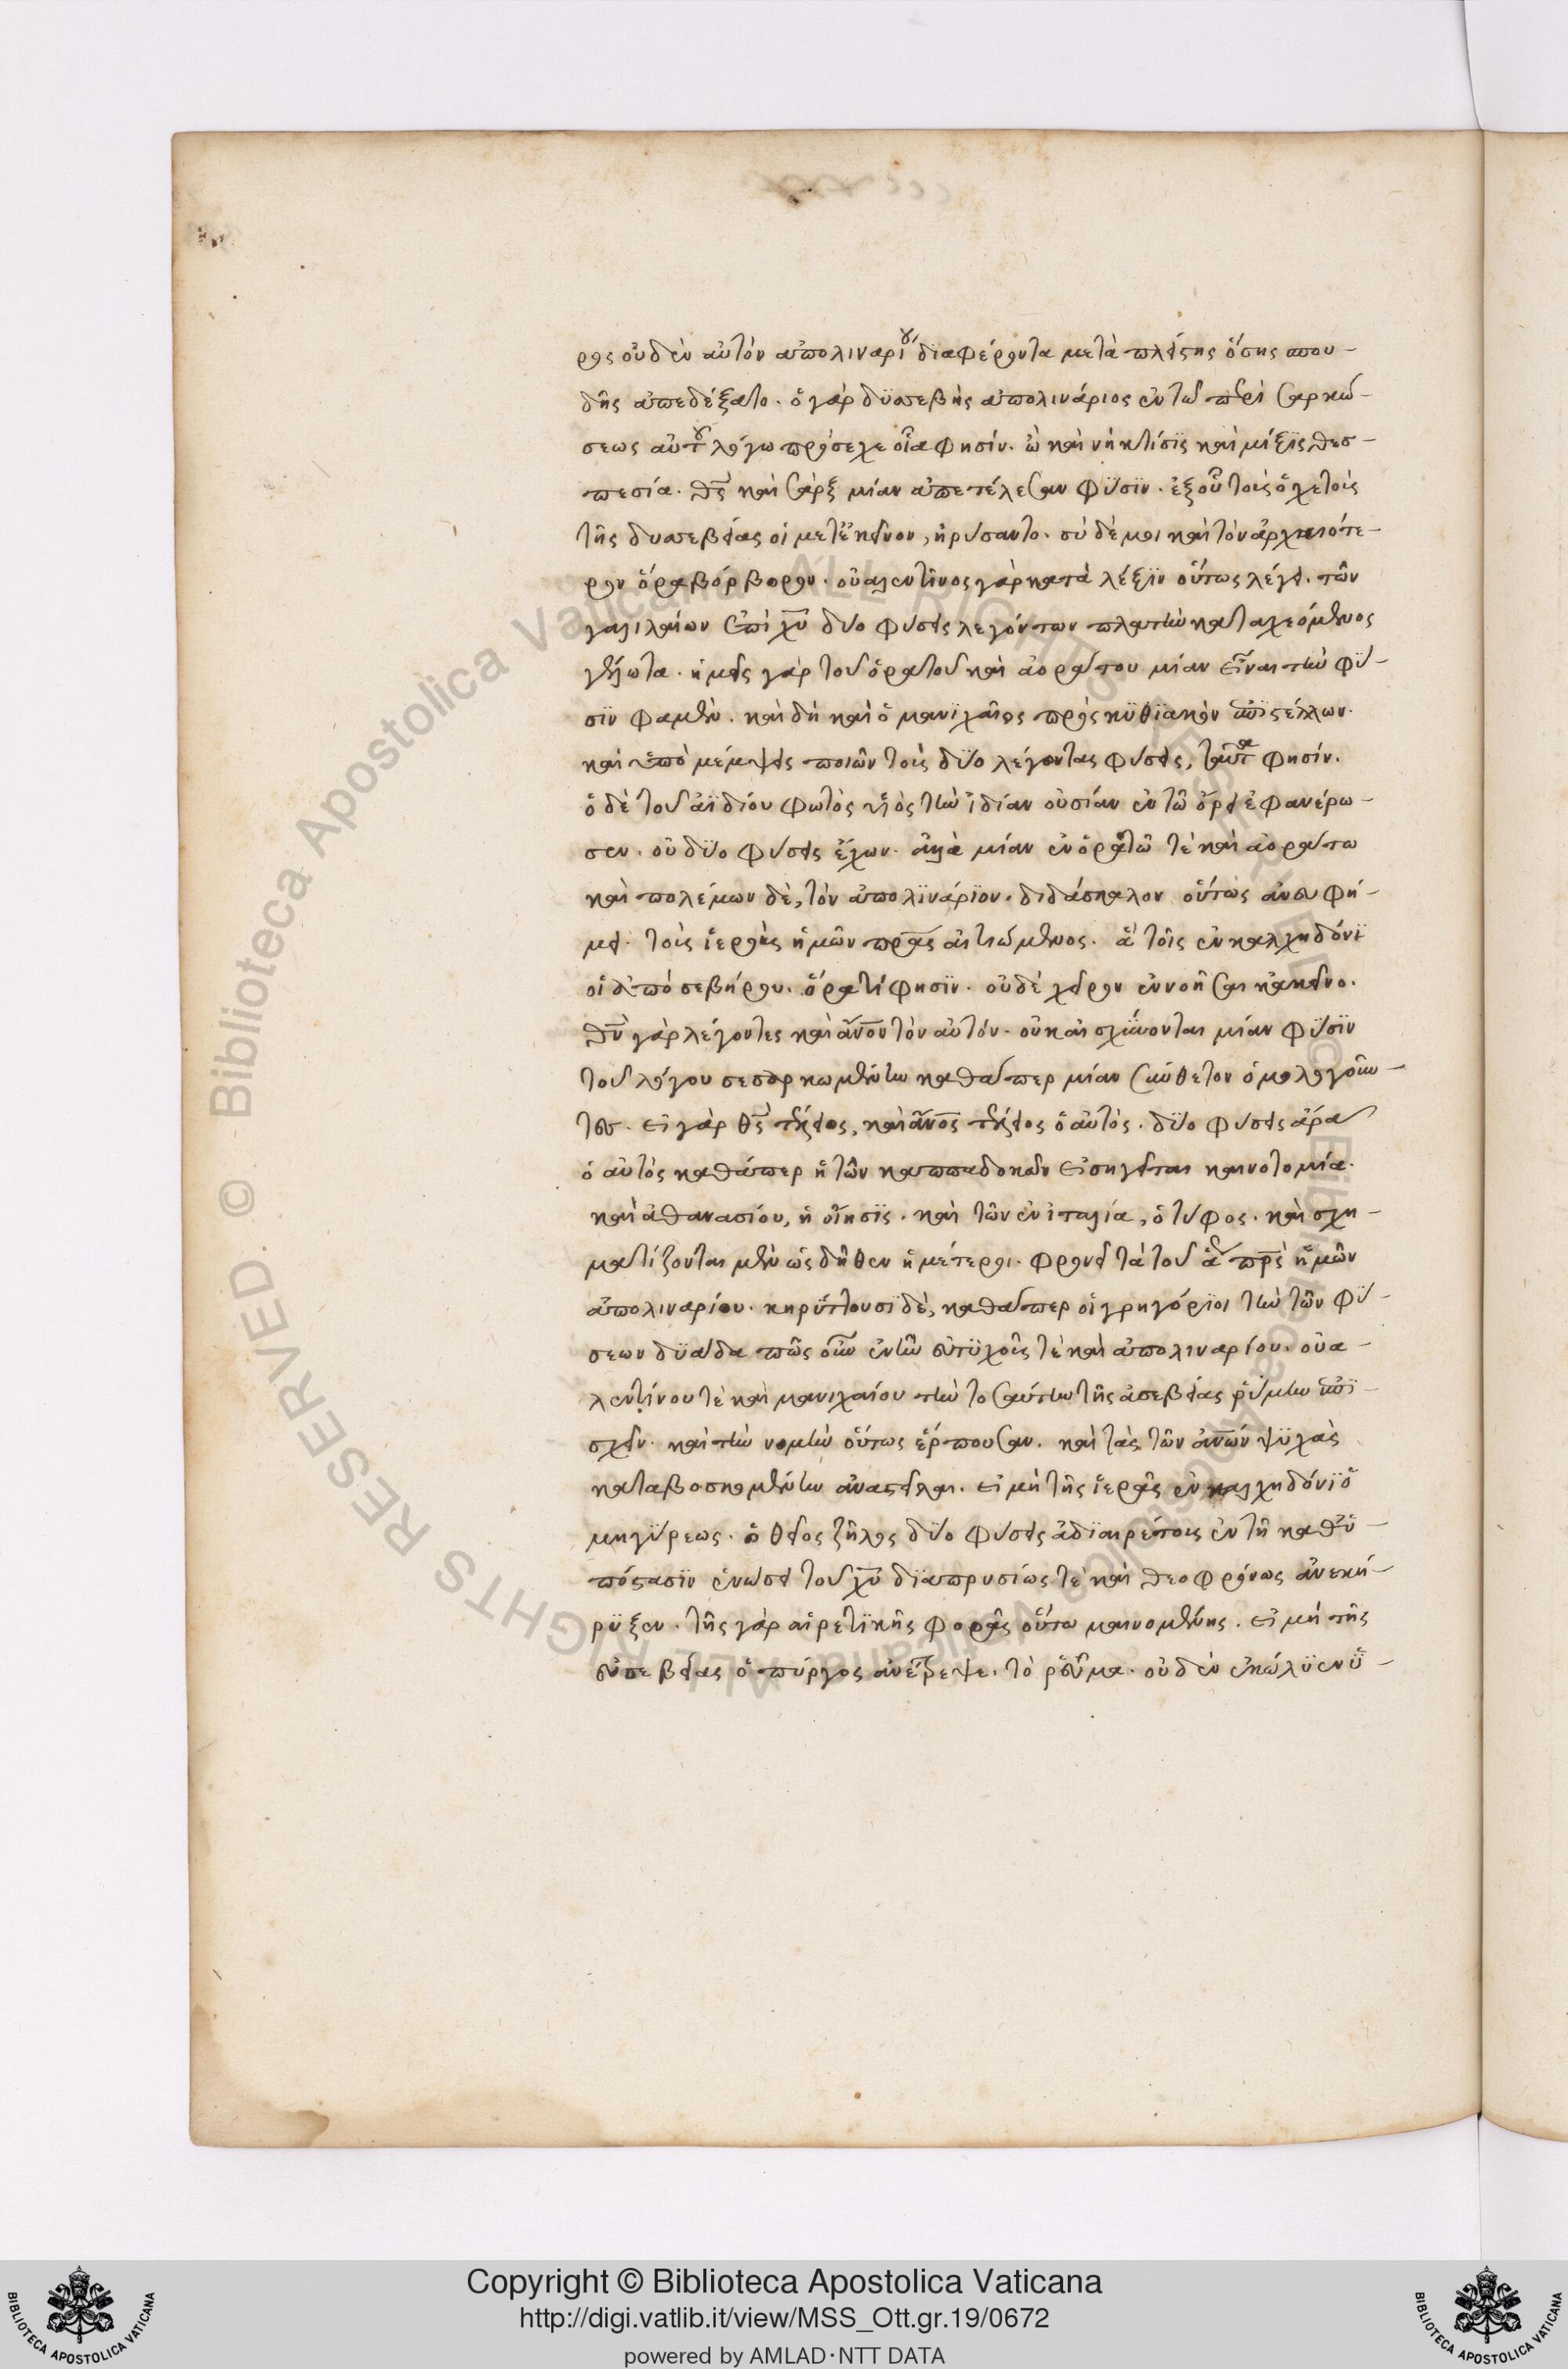 ρος οὐδὲν αὐτὸν ἀπολιναρίου διαφέροντα μετὰ πλείστης ὅσης σπου-
δῆς ἀπεδέξατο. ὁ γὰρ δυσσεβὴς ἀπολινάριος ἐν τῶ περὶ σαρκώ-
σεως αὐτοῦ λόγω πρόσεχε οἷα φησίν. ὦ καινὴ κτίσϊς καὶ μίξϊς θεσ-
πεσία. θς καὶ σὰρξ μίαν ἀπετέλεσαν φύσϊν. ἐξ οὗ τοὺς ὀχετοὺς
τῆς δυσσεβείας οἱ μετ' ἐκεῖνον, ἠρύσαντο. σὺ δέ μοι καὶ τὸν ἀρχαιότε-
ρον ὅρα βόρβορον. οὐαλεντῖνος γὰρ κατὰ λέξϊν οὕτως λέγει. τῶν
γαλιλαίων ἐπὶ χυ δύο φύσεις λεγόντων πλατὺν καταχεόμενος
γέλωτα. ἡμεῖς γὰρ τοῦ ὁρατοῦ καὶ ἀοράτου μίαν εἶναι τὴν φύ-
σϊν φαμὲν. καὶ δὴ καὶ ὁ μανϊχαῖος πρὸς κϋθϊανὸν ἐπϊστέλλων.
καὶ ὑπὸ μέμψεις ποιῶν τοὺς δύο λέγοντας φύσεις, ταῦτα φησίν.
ὁ δὲ τοῦ ἀϊδίου φωτὸς υἱὸς τὴν ἰδίαν οὐσίαν ἐν τῶ ὄρει ἐφανέρω-
σεν. οὐ δύο φύσεις ἔχων. ἀλλὰ μίαν ἐν ὁρατῶ τὲ καὶ ἀοράτω
καὶ πολέμων δὲ, τὸν ἀπολϊνάρϊον. διδάσκαλον οὕτως ἀνευφή-
μει. τοὺς ἱεροὺς ἡμῶν πρας αἰτιώμενος. ἃ τοῖς ἐν καλχηδόνϊ
οἱ ἀπὸ σεβήρου. ὅρα τί φησϊν. οὐδὲ χεῖρον ἐννοῆσαι κἀκεῖνο.
θν γὰρ λέγοντες καὶ ἀνον τὸν αὐτόν. οὐκ αἰσχύνονται μίαν φύσϊν
τοῦ λόγου σεσαρκωμένην καθάπερ μίαν σύνθετον ὁμολογοῦν-
τες. εἰ γὰρ θς τέλειος, καὶ ἀνος τέλειος ὁ αὐτὸς. δύο φύσεις ἄρα
ὁ αὐτὸς καθάπερ ἡ τῶν καππαδοκῶν εἰσηγεῖται καινοτομία.
καὶ ἀθανασίου, ἡ οἴησϊς. καὶ τῶν ἐν ἰταλία, ὁ τύφος. καὶ σχη-
ματίζονται μὲν ὡς δῆθεν ἡμέτεροι. φρονεῖν τὰ τοῦ ἁγ πρς ἡμῶν
ἀπολιναρίου. κηρύττουσϊ δὲ, καθάπερ οἱ γρηγόρϊοι τὴν τῶν φύ-
σεων δϋάδα πῶς οὖν ἐνῆν εὐτϋχοῦς τὲ καὶ ἀπολιναρίου. οὐα-
λεντίνου τὲ καὶ μανιχαίου τὴν τοσαύτην τῆς ἀσεβείας ῥύμην ἐπϊ-
σχεῖν. καὶ τὴν νομὴν οὕτως ἕρπουσαν. καὶ τὰς τῶν ἀνων ψϋχὰς
καταβοσκομένην ἀναστεῖλαι. εἰ μὴ τῆς ἱερᾶς ἐν καλχηδόνϊ ὁ
μηγύρεως. ὁ θεῖος ζῆλος δύο φύσεις ἀδϊαιρέτοις ἐν τῆ καθ' ὑ-
πόστασϊν ἑνώσει τοῦ χυ δϊαπρυσίως τὲ καὶ θεοφρόνως ἀνεκή-
ρϋξεν. τῆς γὰρ αἱρετϊκῆς φορᾶς οὕτω μαινομένης. εἰ μὴ τῆς
εὐσεβείας ὁ πύργος ἀνέτρεψε. τὸ ῥεῦμα. οὐδὲν ἐκώλϋεν ὑ-
Copyright © Biblioteca Apostolica Vaticana
http://digi.vatlib.it/view/MSS_Ott.gr.19/0672
powered by AMLAD·NTT DATA